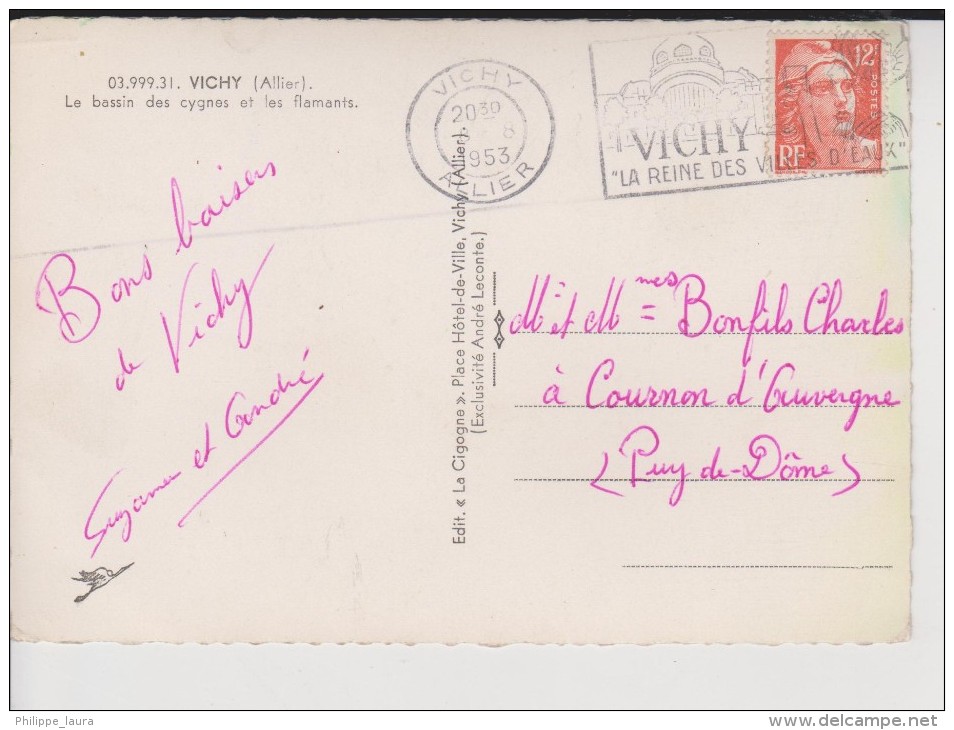 03.999.31. VICHY (Allier).
Le bassin des cygnes et les flamants.
VICHY
20 30
8
1953
ALLIER
VICHY
"LA REINE DES VILLES D'EAUX"
12F
POSTES
RF
Bons baisers
de Vichy
Suzanne et André
Edit. « La Cigogne ». Place Hôtel-de-Ville, Vichy (Allier).
(Exclusivité André Leconte.)
Mr et Mmes = Bonfils Charles
à Cournon d'Auvergne
(Puy de-Dôme)
Philippe_laura
www.delcampe.net